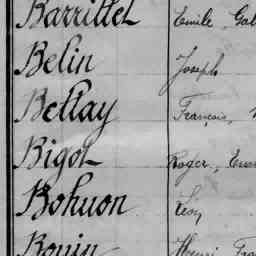 Barrittel Emile, Gab
Belin Joseph
Bellay François,
Bigot Roger, Eug
Bohuon Léon
Bouin Henri Fran